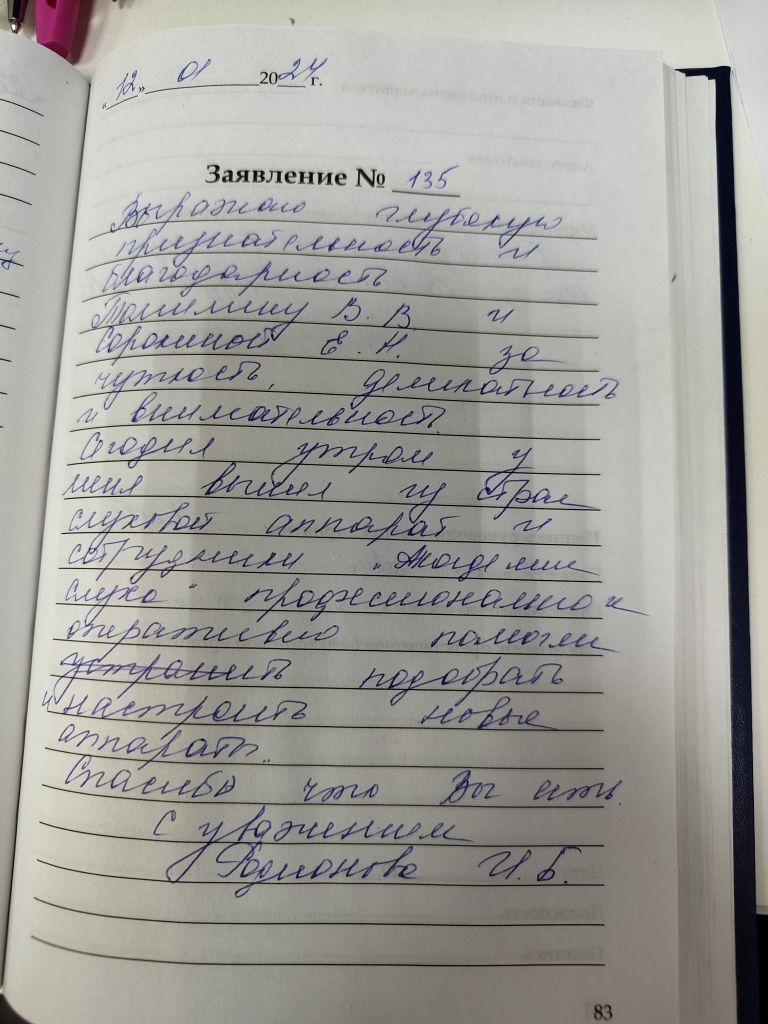 «12» 01 2024 г.
Заявление № 135
Выражаю глубокую
признательность и
благодарность
Томилину В. В. и
Сорокиной Е. Н. за
чуткость, деликатность
и внимательность.
Сегодня утром у
меня вышел из строя
слуховой аппарат и
сотрудники "Академии
слуха" профессионально и
оперативно помогли
устранить подобрать
и настроить новые
аппараты.
Спасибо что Вы есть.
С уважением
Родионова И. Б.
83